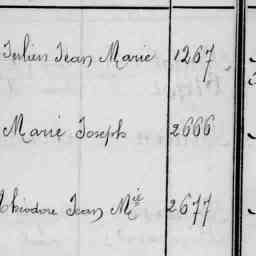 Julien Jean Marie 1267
Marie Joseph 2666
Théodore Jean Mie 2677